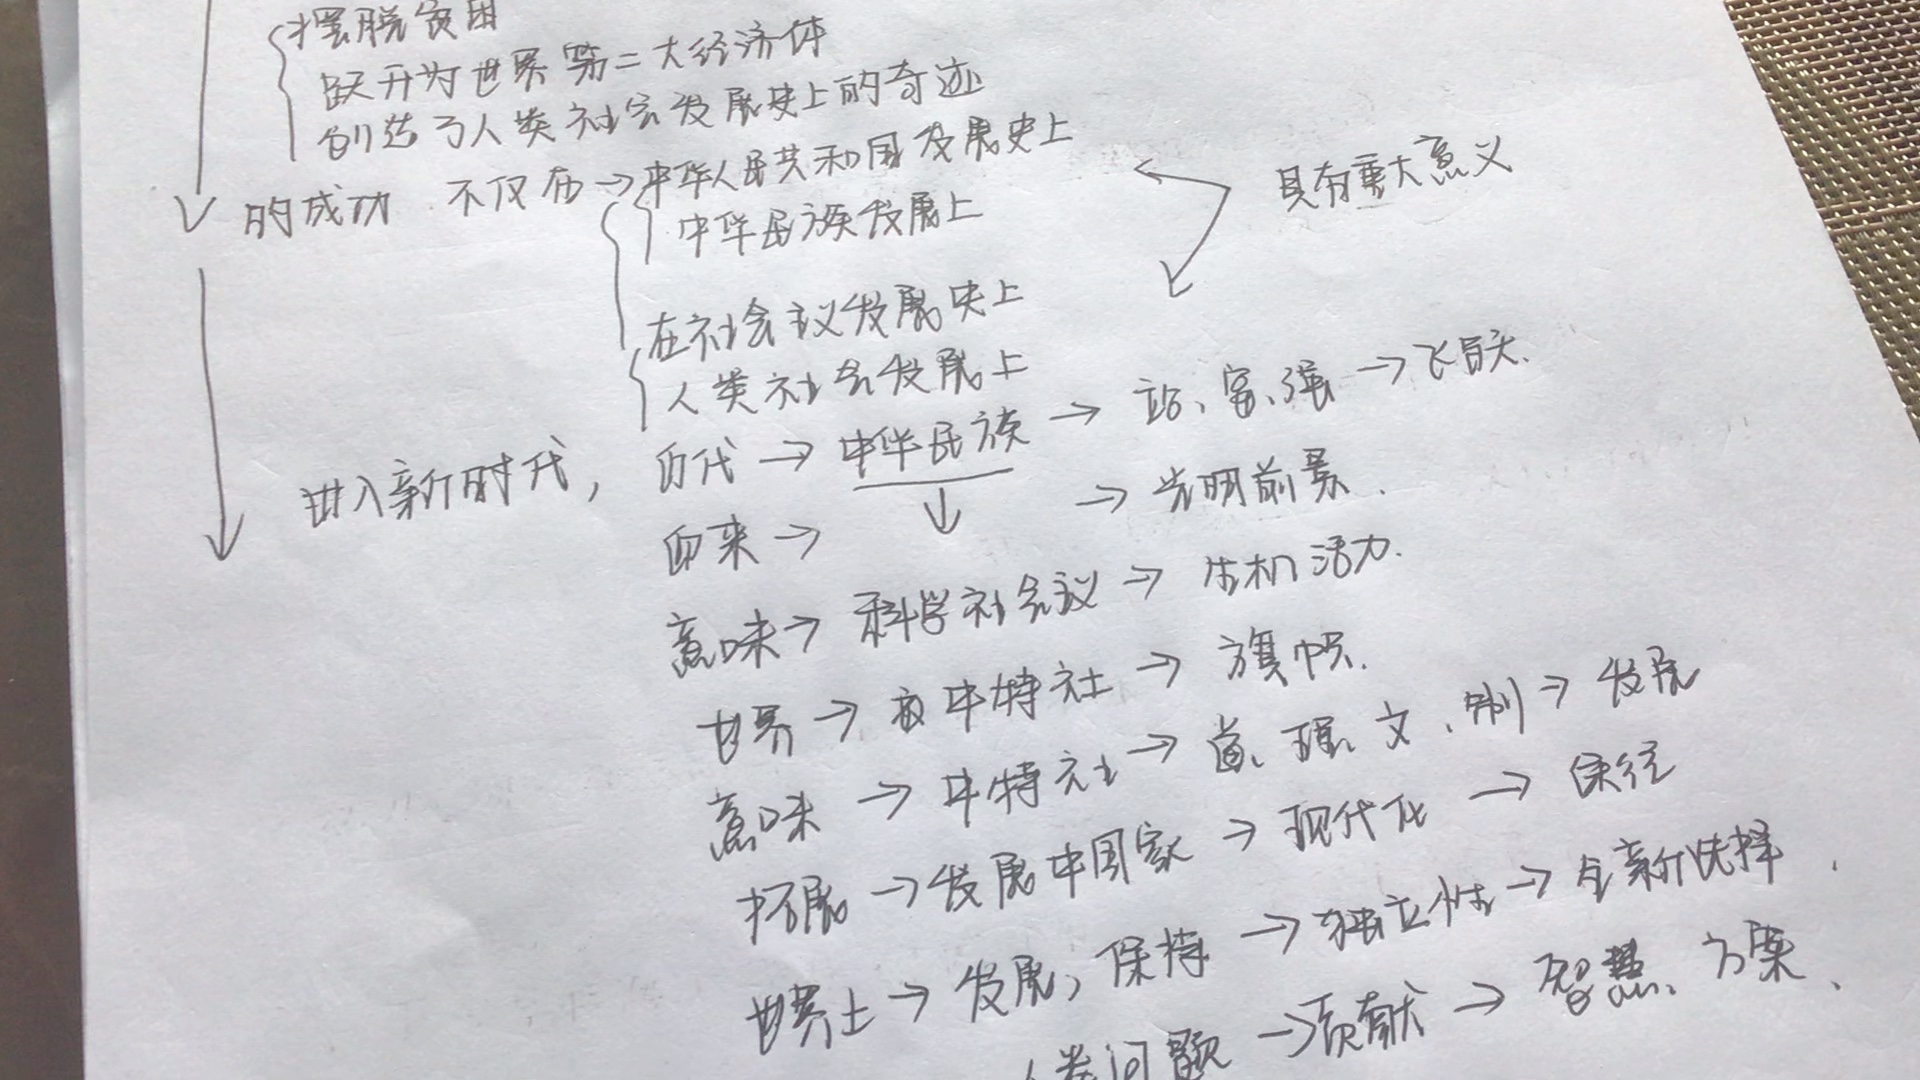 摆脱贫困
跃升为世界第二大经济体
创造了人类社会发展史上的奇迹
的成功 不仅在→中华人民共和国发展史上
具有重大意义
中华民族发展上
在社会主义发展史上
人类社会发展上
进入新时代, 历代→中华民族→站、富、强→飞跃.
迎来→ →光明前景.
意味→科学社会主义→生机活力.
世界→ 中特社→旗帜.
意味→中特社→道、理、文、制→发展
拓展→发展中国家→现代化→途径
世界上→发展,保持→独立性→全新选择
人类问题→贡献→智慧、方案、